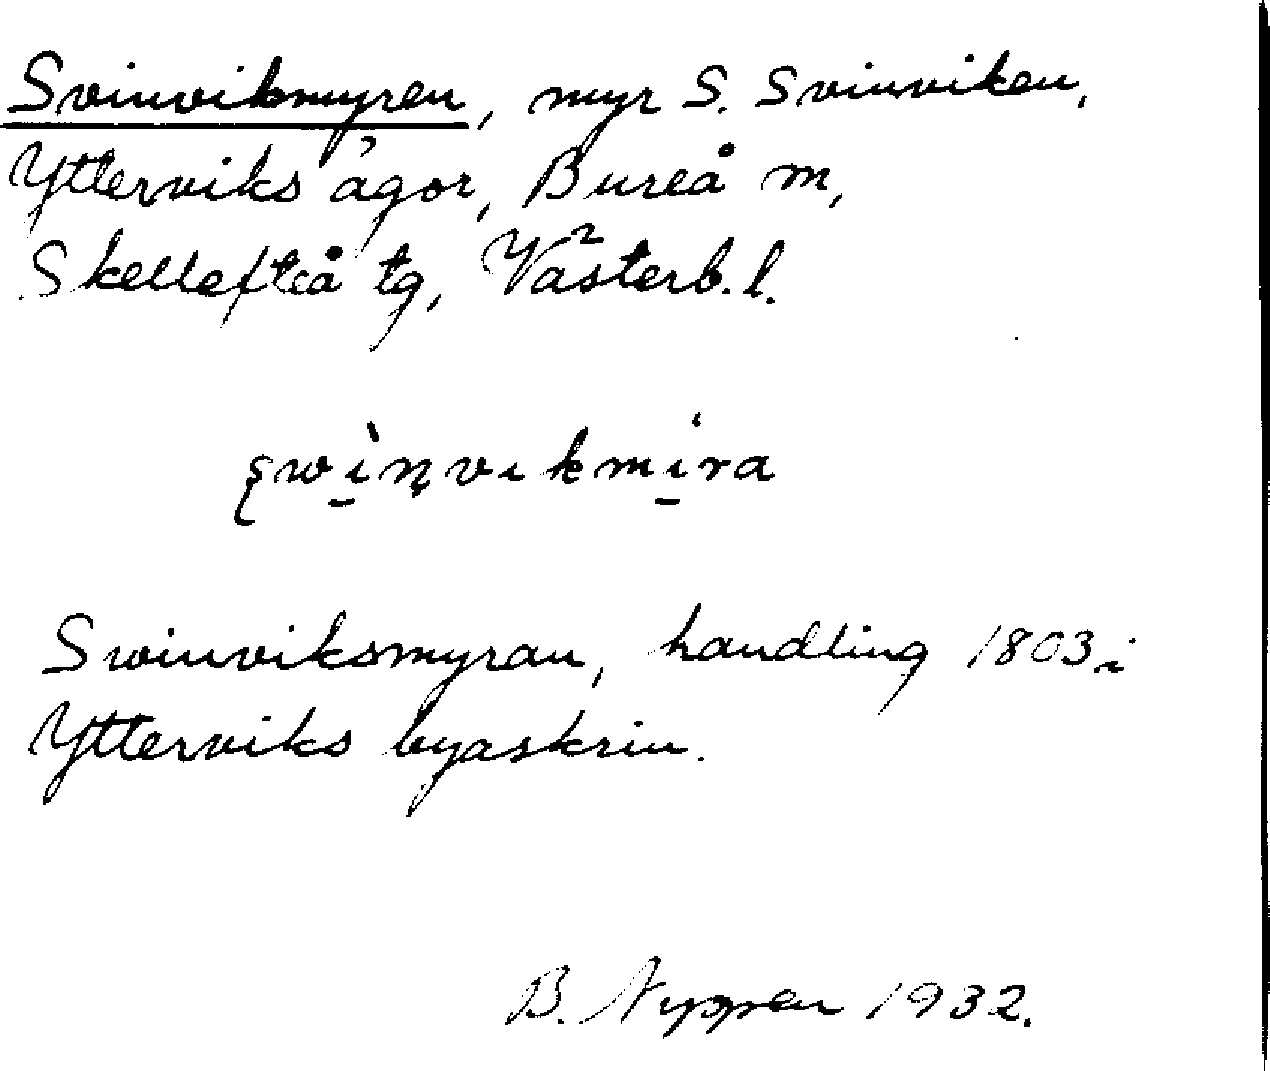 Svinvikmyren, myr S. Svinviken,
Ytterviks ägor, Bureå m,
Skellefteå tg, Västerb. l.
ʂwì̱ṇvɩkmi̱ra
Swinviksmyran, handling 1803 i
Ytterviks byaskrin.
B. Nygren 1932.